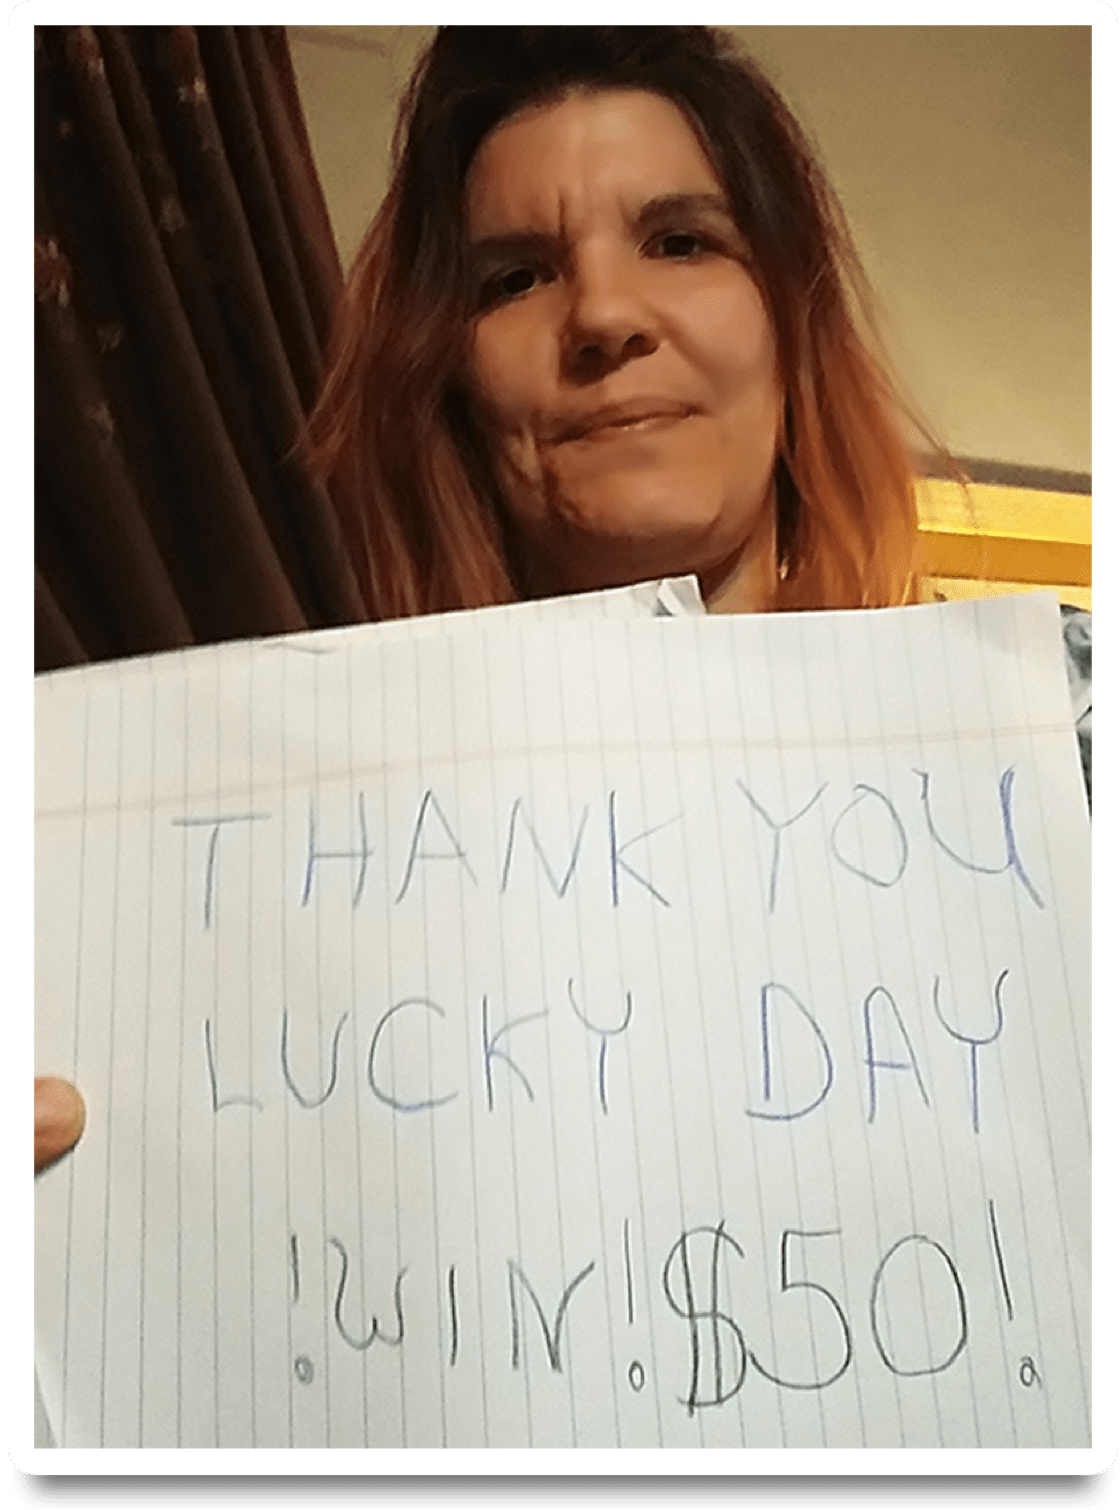 THANK YOU
LUCKY DAY
!WIN!$50!